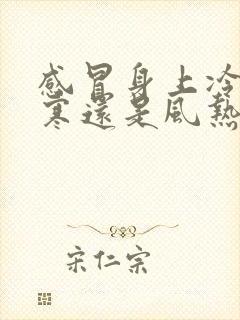 感冒身上冷
寒還是風熱
宋仁宗